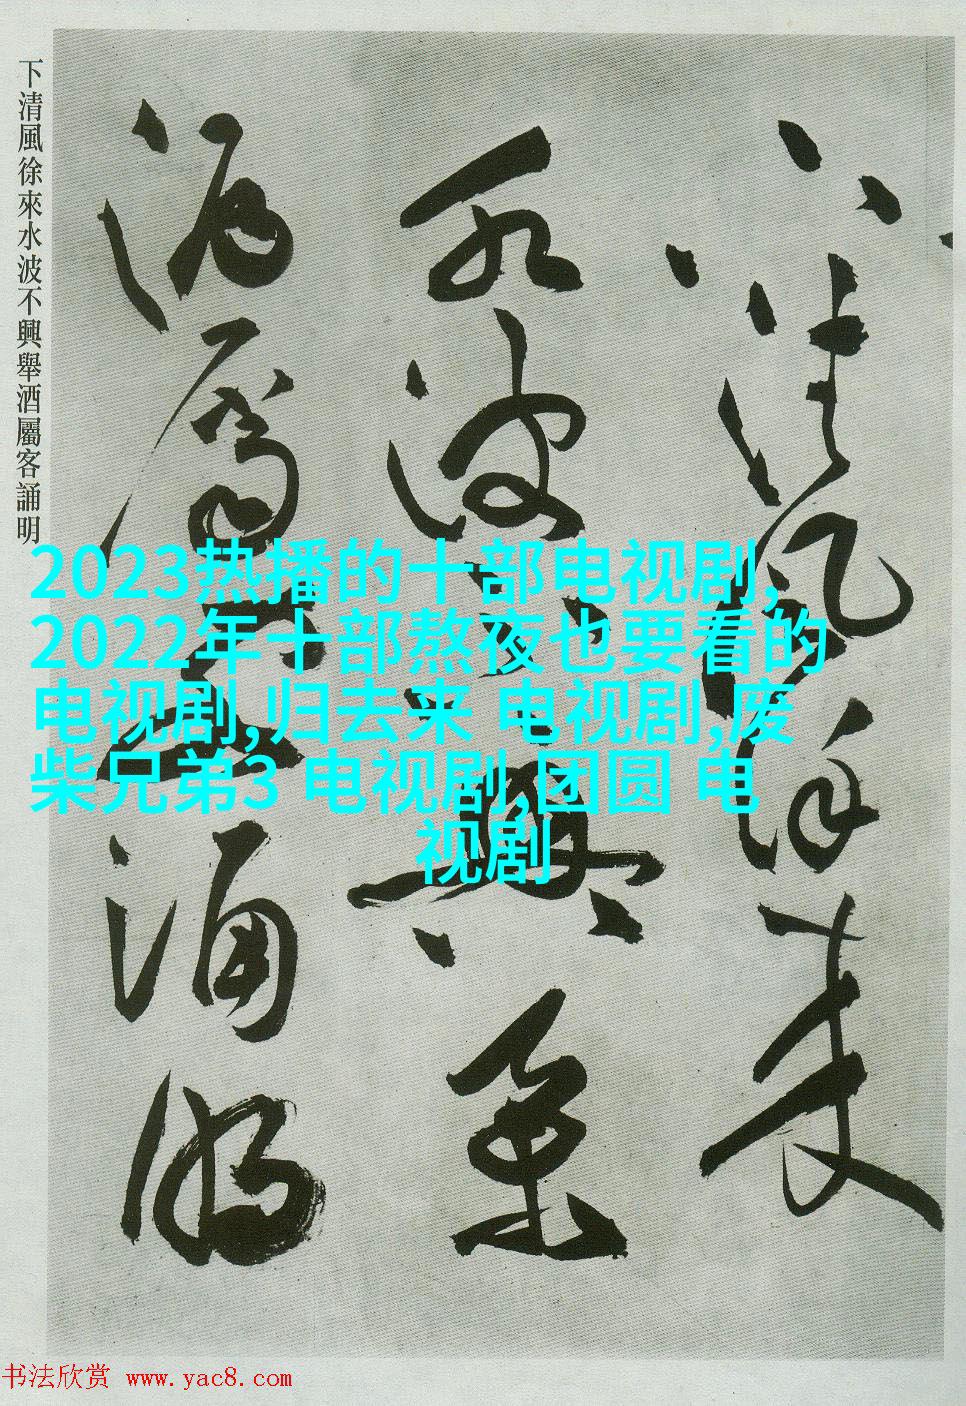 下清風徐來水波不興舉酒屬客誦明
下清風徐來
水波不興舉
酒屬客誦明
2023热播的十部电视剧,
2022年十部熬夜也要看的
电视剧,归去来 电视剧,废
柴兄弟3 电视剧,团圆 电
视剧
书法欣赏 www.yac8.com